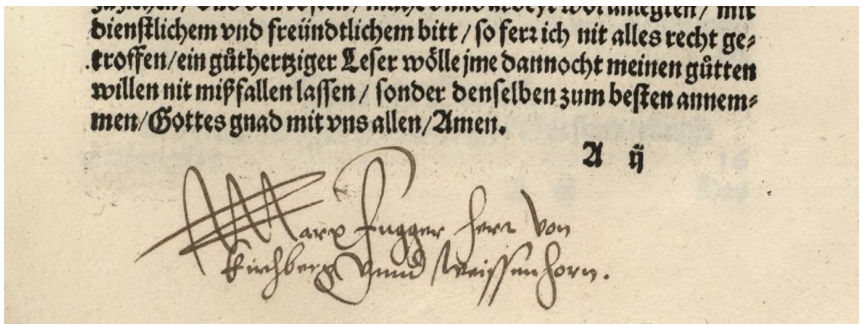 zuziehen / vnd den kosten / mühe vnnd arbeyt wol anlegten / mit
dienstlichem vnd freündtlichem bitt / so ferr ich nit alles recht ge⸗
troffen / ein gůthertziger Leser wölle jme dannocht meinen gůtten
willen nit mißfallen lassen / sonder denselben zum besten annem⸗
men / Gottes gnad mit vns allen / Amen.
A ij
Marx Fugger herr von
Kirchberg vnnd Weissenhorn.